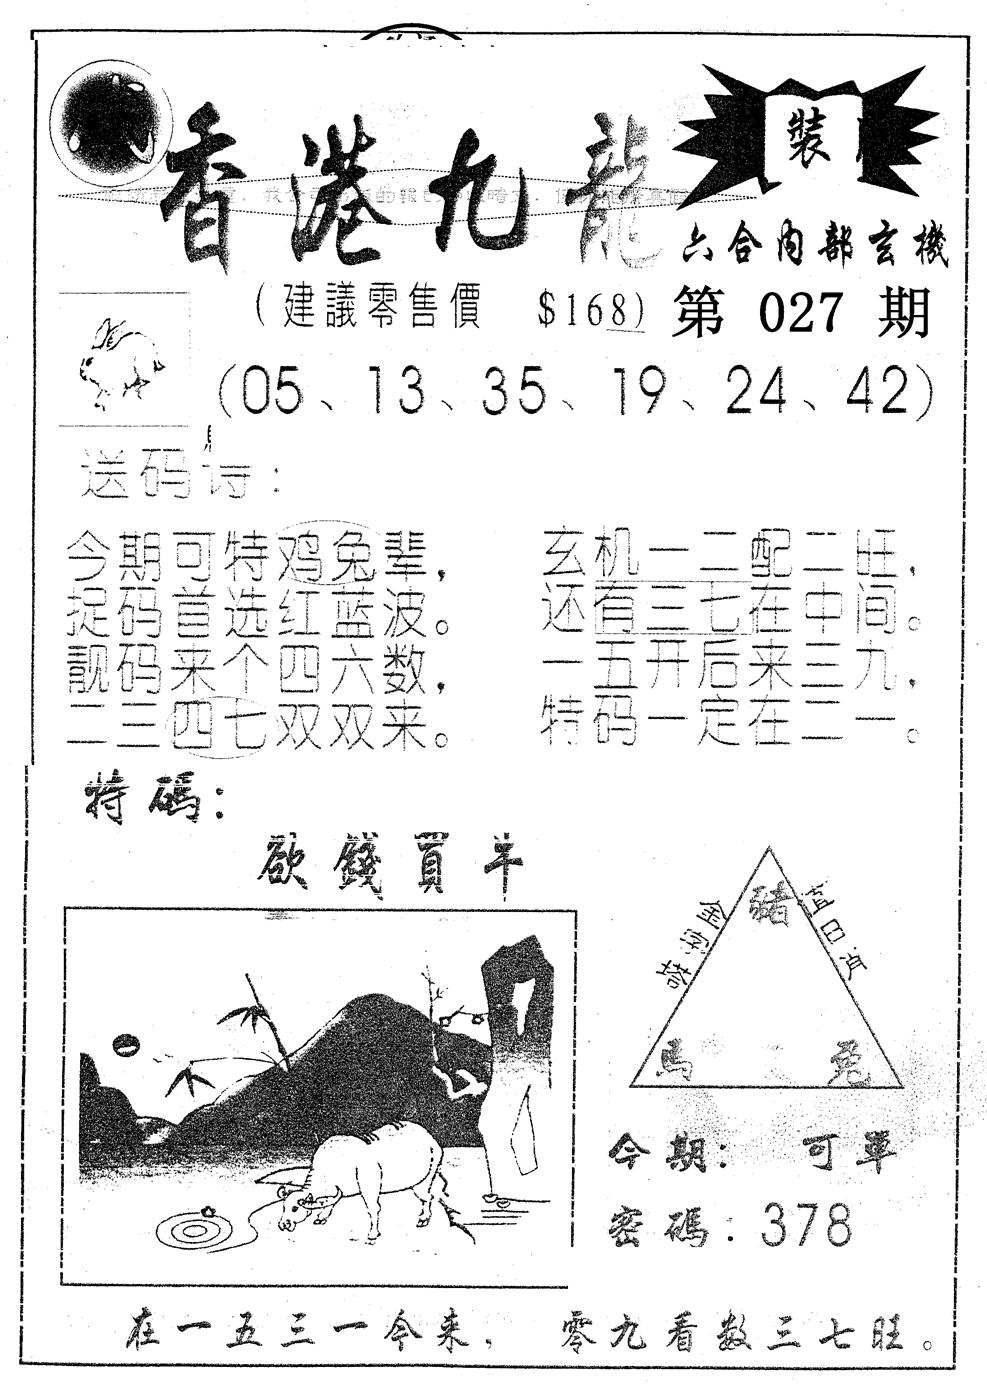 香港九龍
裝
六合內部玄機
(建議零售價 $168) 第 027 期
(05、13、35、19、24、42)
送码诗:
今期可特鸡兔辈,
捉码首选红蓝波。
靓码来个四六数,
二三四七双双来。
玄机一二配二旺,
还有三七在中间。
一五开后来三九,
特码一定在二一。
特碼:
欲錢買牛
豬
金字塔
值日肖
馬
兔
今期: 可單
密碼:378
在一五三一今来, 零九看数三七旺。